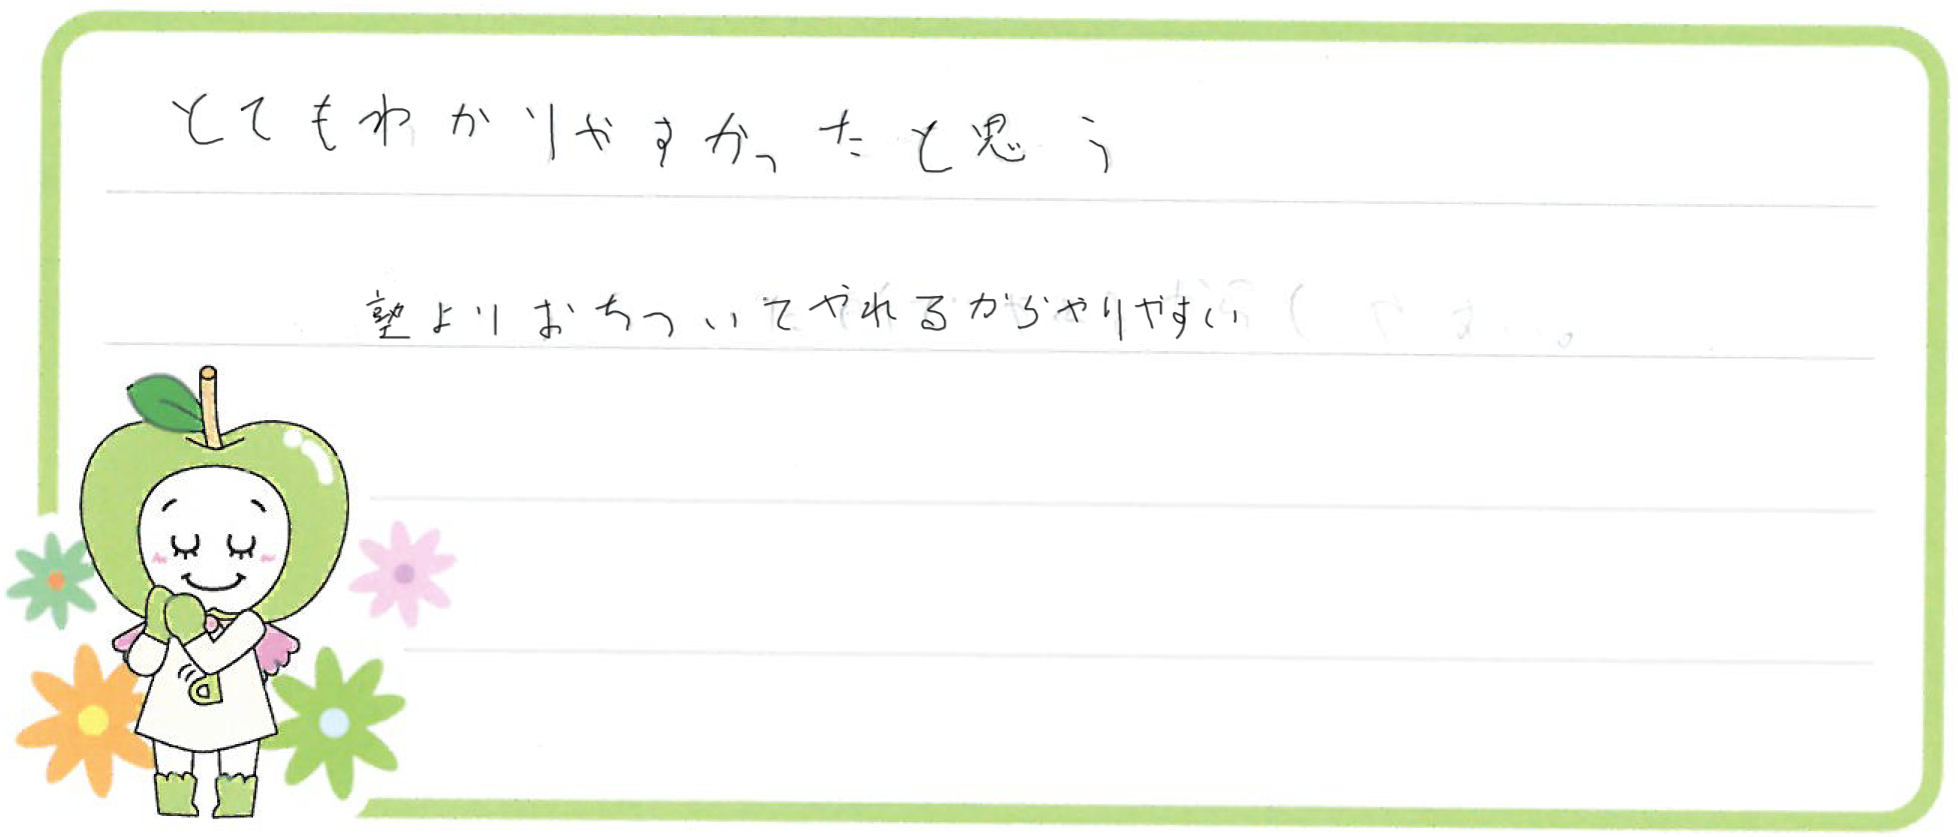 とてもわかりやすかったと思う
塾よりおちついてやれるからやりやすい